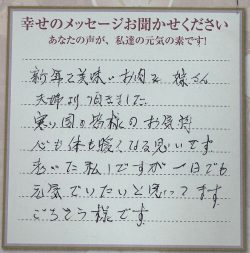 幸せのメッセージお聞かせください
あなたの声が、私達の元気の素です!
新年で美味いお肉を 様さん
夫婦より頂きました
寒い国の皆様のお気持
心も体も暖くなる思いです
老いた私ですが一日でも
元気でいたいと思ってます
ごちそう様です